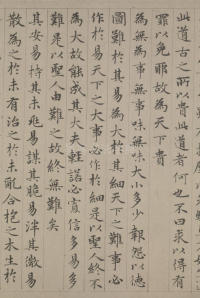 此道古之所以貴此道者何也不曰求以得有
罪以免耶故為天下貴
為無為事無事味無味大小多少報怨以德
圖難於其易為大於其細天下之難事必
作於易天下之大事必作於細是以聖人終不
為大故能成其大夫輕諾必寡信多易多
難是以聖人由難之故終無難矣
其安易持其未兆易謀其脆易泮其微易
散為之於未有治之於未亂合抱之木生於